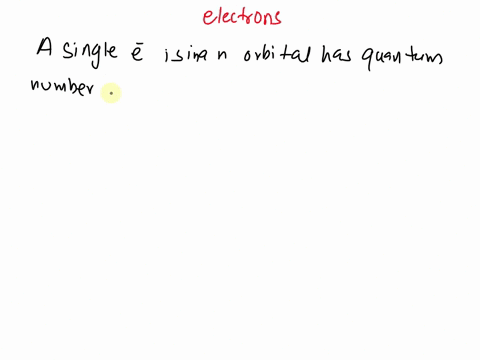 electrons
A single ē is in a n orbital has quantum
number